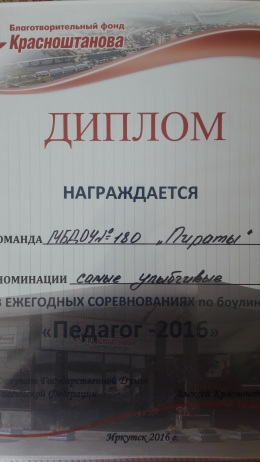 Благотворительный фонд
Красноштанова
ДИПЛОМ
НАГРАЖДАЕТСЯ
ОМАНДА МБДОУ № 180 „Пираты"
НОМИНАЦИИ самые улыбчивые
В ЕЖЕГОДНЫХ СОРЕВНОВАНИЯХ по боулин
«Педагог -2016»
Государственной Думы
Федерации Красношт
Иркутск 2016 г.